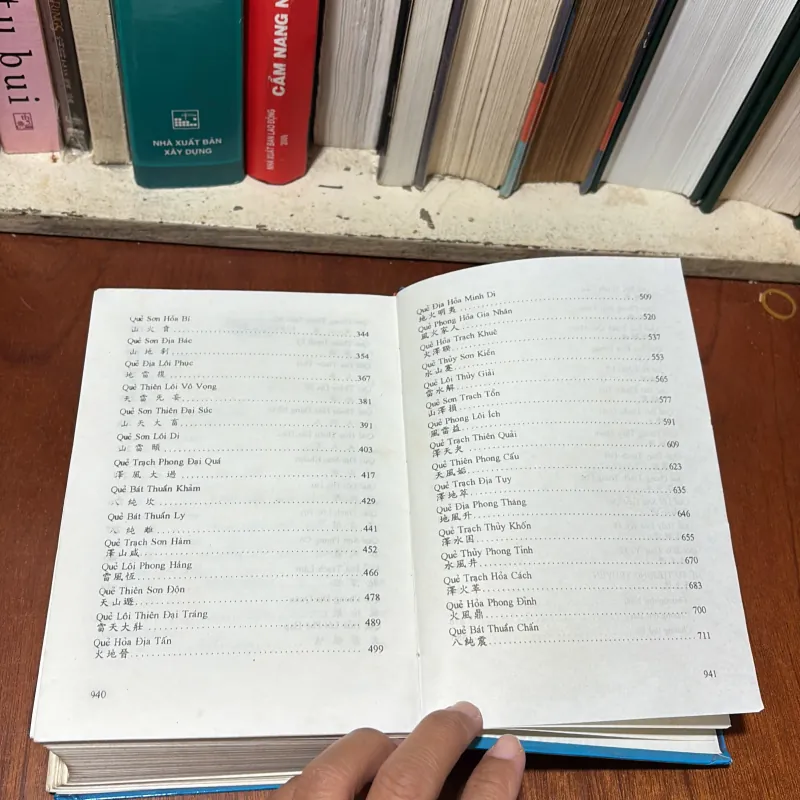 tu bui
NHÀ XUẤT BẢN
XÂY DỰNG
CẨM NANG N
NHÀ XUẤT BẢN LAO ĐỘNG
Quẻ Sơn Hỏa Bí
山 火 賁 344
Quẻ Sơn Địa Bác
山 地 剝 354
Quẻ Địa Lôi Phục
地 雷 復 367
Quẻ Thiên Lôi Vô Vọng
天 雷 无 妄 381
Quẻ Sơn Thiên Đại Súc
山 天 大 畜 391
Quẻ Sơn Lôi Di
山 雷 頤 403
Quẻ Trạch Phong Đại Quá
澤 風 大 過 417
Quẻ Bát Thuần Khảm
八 純 坎 429
Quẻ Bát Thuần Ly
八 純 離 441
Quẻ Trạch Sơn Hàm
澤山咸 452
Quẻ Lôi Phong Hằng
雷風恆 466
Quẻ Thiên Sơn Độn
天山遯 478
Quẻ Lôi Thiên Đại Tráng
雷天大壯 489
Quẻ Hỏa Địa Tấn
火地晉 499
940
Quẻ Địa Hỏa Minh Di
地火明夷 509
Quẻ Phong Hỏa Gia Nhân
風火家人 520
Quẻ Hỏa Trạch Khuê
火澤睽 537
Quẻ Thủy Sơn Kiển
水山蹇 553
Quẻ Lôi Thủy Giải
雷水解 565
Quẻ Sơn Trạch Tổn
山澤損 577
Quẻ Phong Lôi Ích
風雷益 591
Quẻ Trạch Thiên Quải
澤天夬 609
Quẻ Thiên Phong Cấu
天風姤 623
Quẻ Trạch Địa Tụy
澤地萃 635
Quẻ Địa Phong Thăng
地風升 646
Quẻ Trạch Thủy Khốn
澤水困 655
Quẻ Thủy Phong Tỉnh
水風井 670
Quẻ Trạch Hỏa Cách
澤火革 683
Quẻ Hỏa Phong Đỉnh
火風鼎 700
Quẻ Bát Thuần Chấn
八純震 711
941